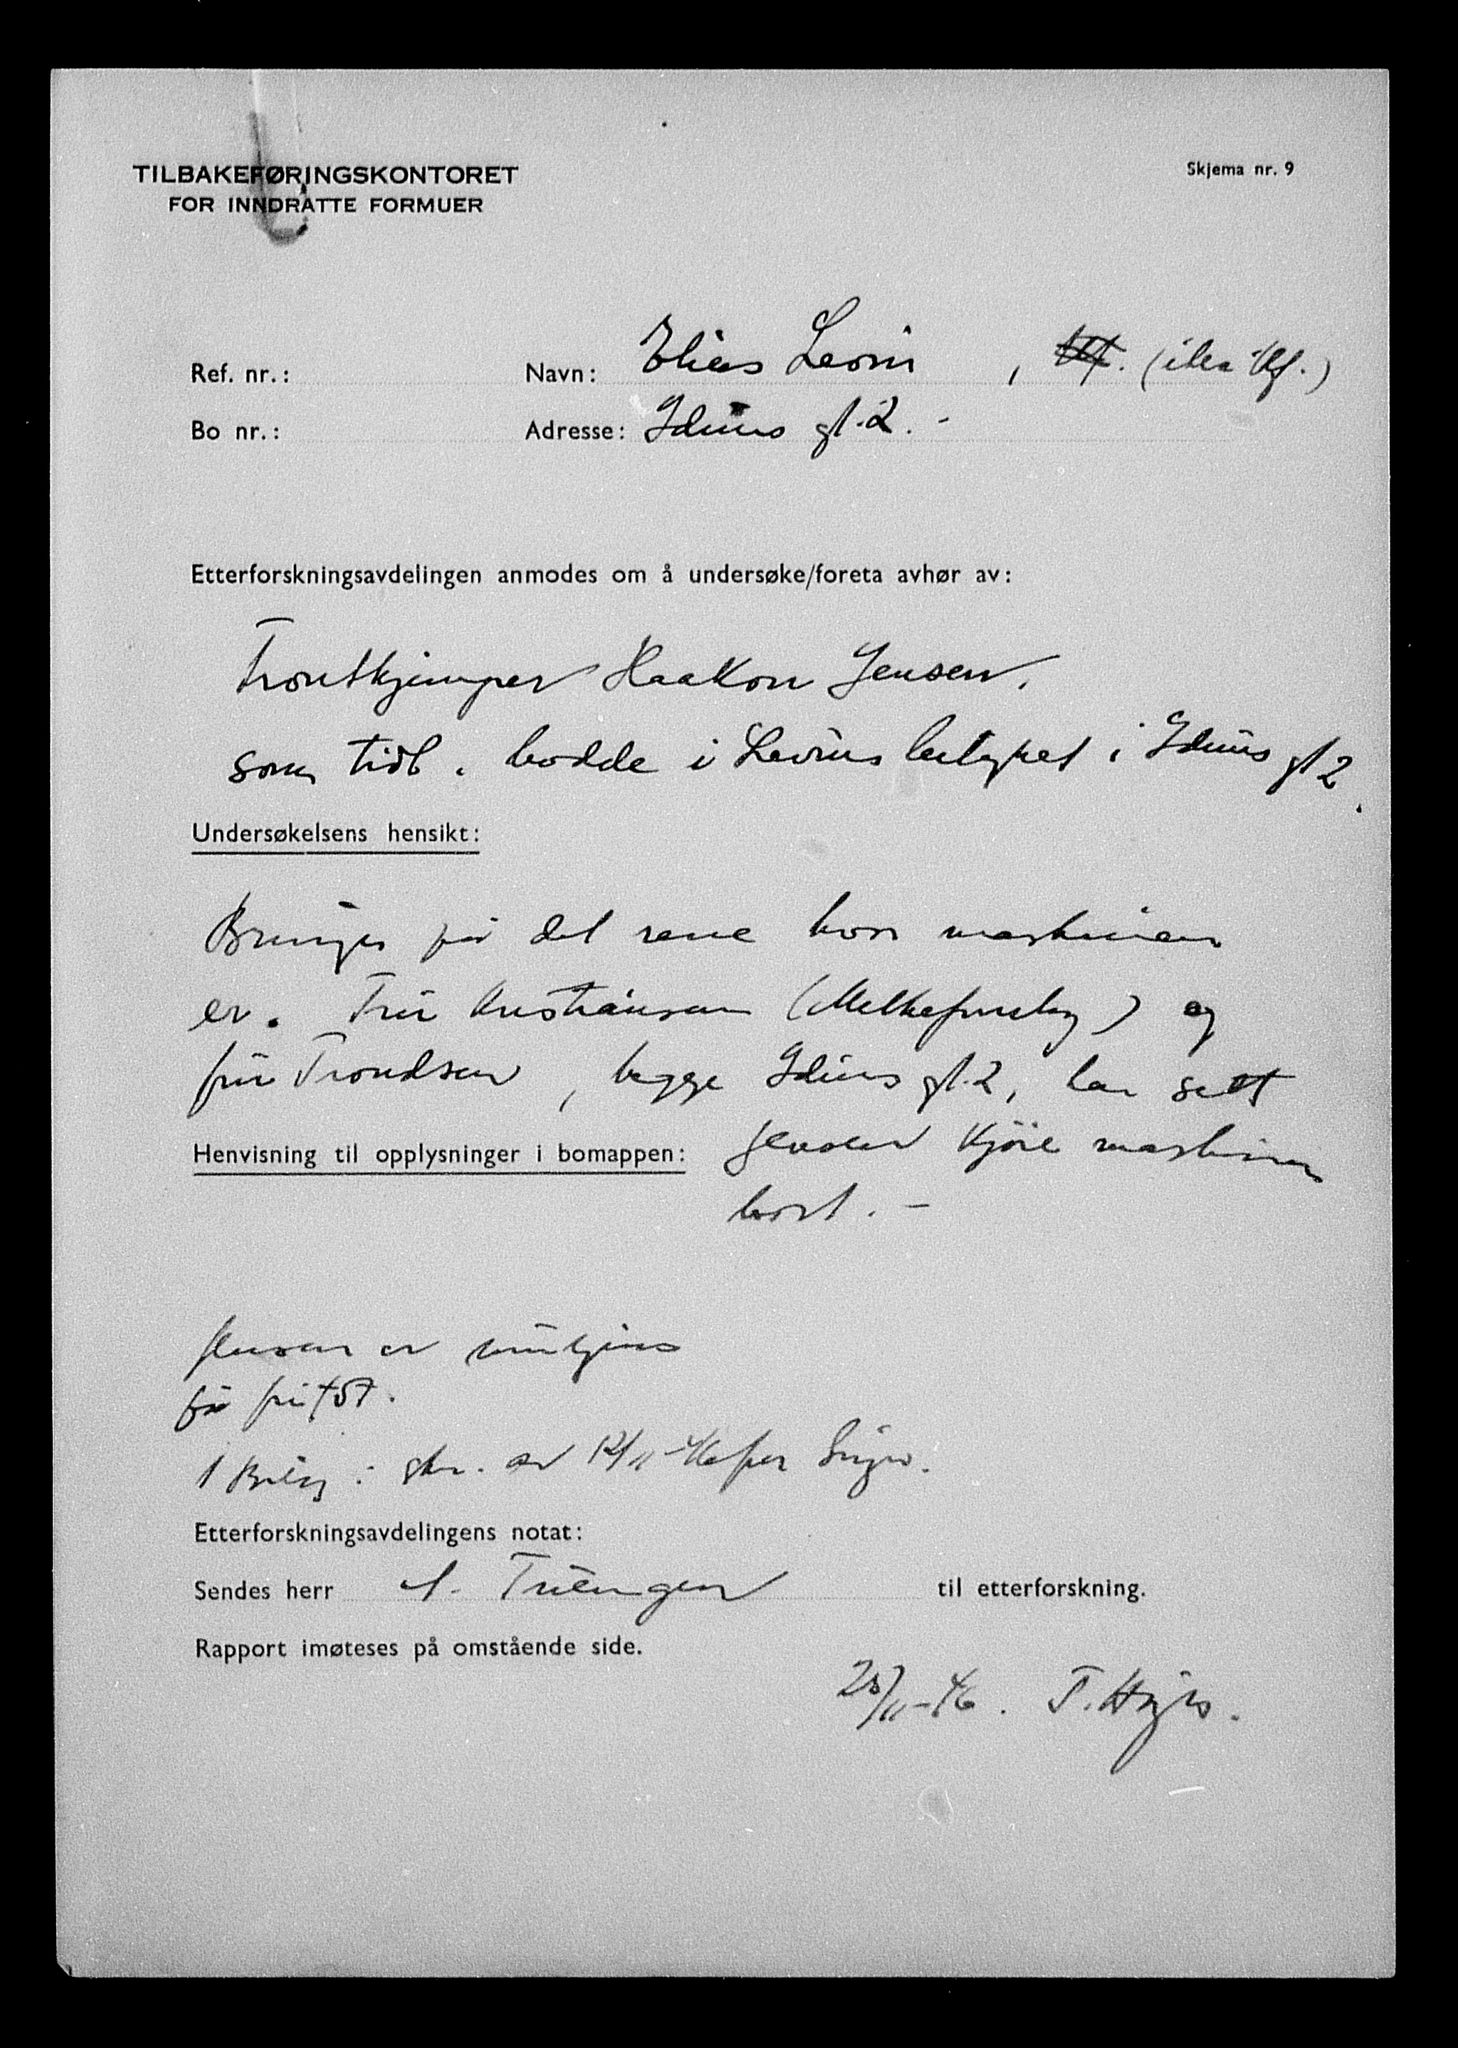 TILBAKEFØRINGSKONTORET
FOR INNDRATTE FORMUER
Skjema nr. 9
Ref. nr.: Navn: Elias Levin, (ikke
Bo nr.: Adresse: Iduns gt. 2. -
Etterforskningsavdelingen anmodes om å undersøke/foreta avhør av:
Frontkjemper Haakon Jensen,
som tidl. bodde i Levins leilighet i Iduns gt 2.
Undersøkelsens hensikt:
Bringes på det rene hvor maskinen
er. Fru Kristiansen (Melkeforsyning) og
fru Trondsen, begge Iduns gt. 2, har sett
Henvisning til opplysninger i bomappen: Jensen kjøre maskinen
bort. -
Jensen er
på
1 Bilag: skr. av 12/11-46 fra
Etterforskningsavdelingens notat:
Sendes herr til etterforskning.
Rapport imøteses på omstående side.
/11-46. T.